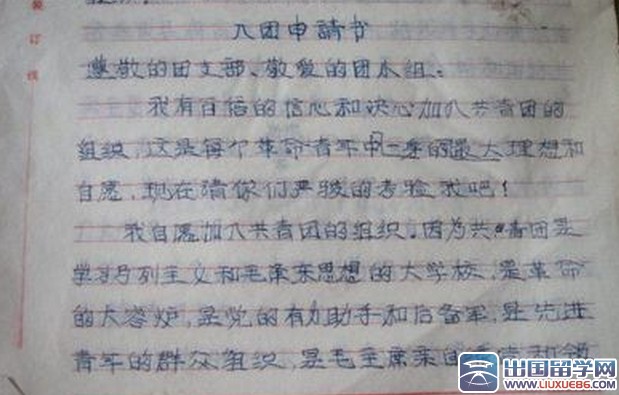 装订线
入团申請书
尊敬的团支部、敬爱的团小组:
我有百倍的信心和决心加入共青团的
组织,这是每个革命青年中一生的最大理想和
自愿,现在请你们严骏的考验我吧!
我自愿加入共青团的组织。因为共青团是
学习马列主义和毛泽东思想的大学校,是革命
的大容炉,是党的有力助手和后备军,是先进
青年的群众组织,是毛主席亲
出国留学网
WWW.LIUXUE86.COM